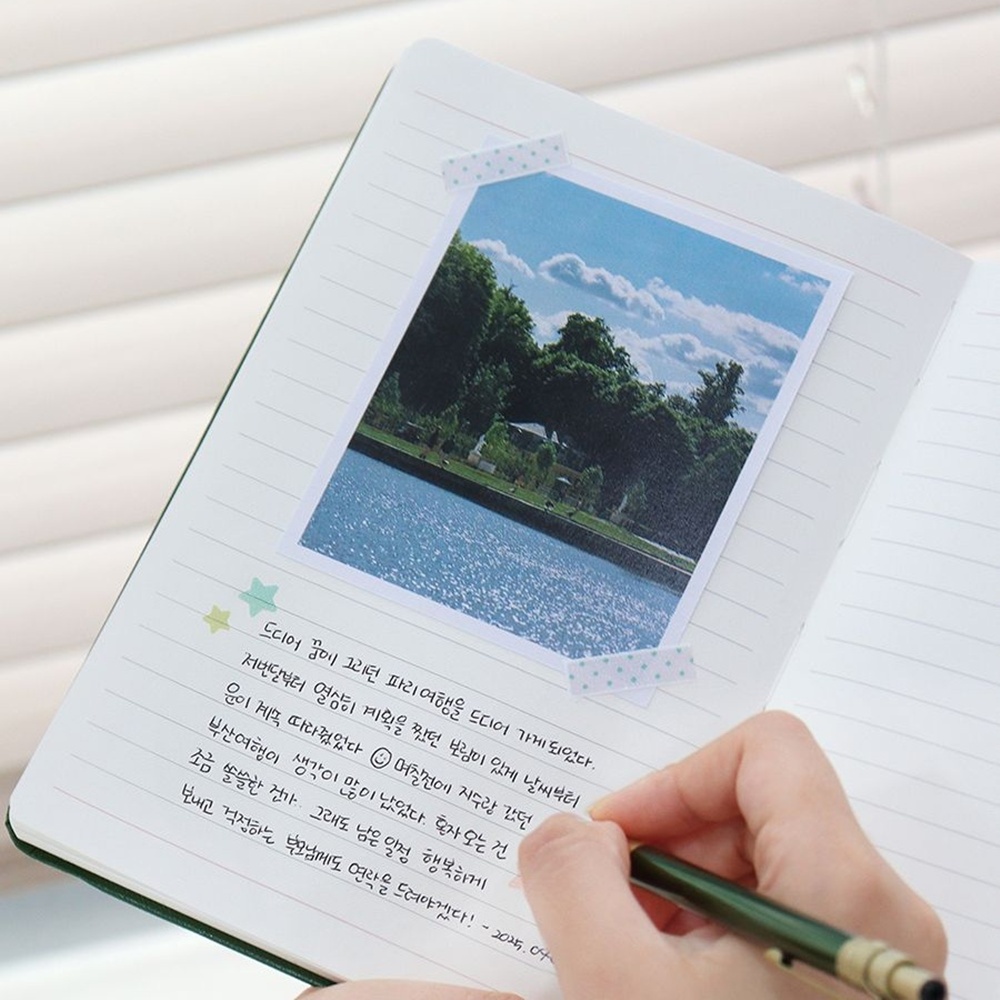 드디어 꿈에 그리던 파리여행을 드디어 가게 되었다.
저번달부터 열심히 계획을 짰던 보람이 있게 날씨부터
운이 계속 따라줬었다 며칠전에 지수랑 갔던
부산여행이 생각이 많이 났었다. 혼자 오는 건
조금 쓸쓸한 건가. 그래도 남은 일정 행복하게
보내고 걱정하는 부모님께도 연락을 드려야겠다! - 2025.